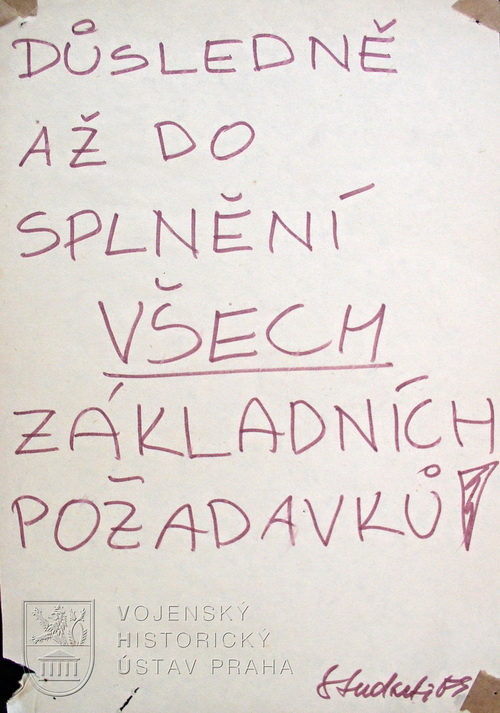 DŮSLEDNĚ
AŽ DO
SPLNĚNÍ
VŠECH
ZÁKLADNÍCH
POŽADAVKŮ!
VOJENSKÝ
HISTORICKÝ
ÚSTAV PRAHA
Studenti 89